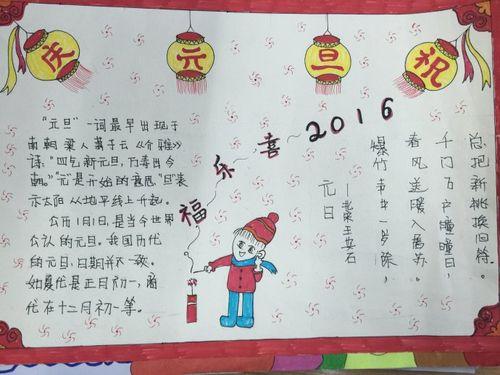 庆 元 旦 祝
福乐喜2016
"元旦"一词最早出现于
南朝梁人萧子云《介雅》
诗:"四气新元旦,万寿初今
朝。"元"是开始的意思"旦"表
示太阳从地平线上升起。
公历1月1日,是当今世界
公认的元旦。我国历代
的元旦,日期并不一致。
如夏代是正月初一,商
代在十二月初一等。
元日
—北宋王安石
爆竹声中一岁除,
春风送暖入屠苏。
千门万户瞳瞳日,
总把新桃换旧符。